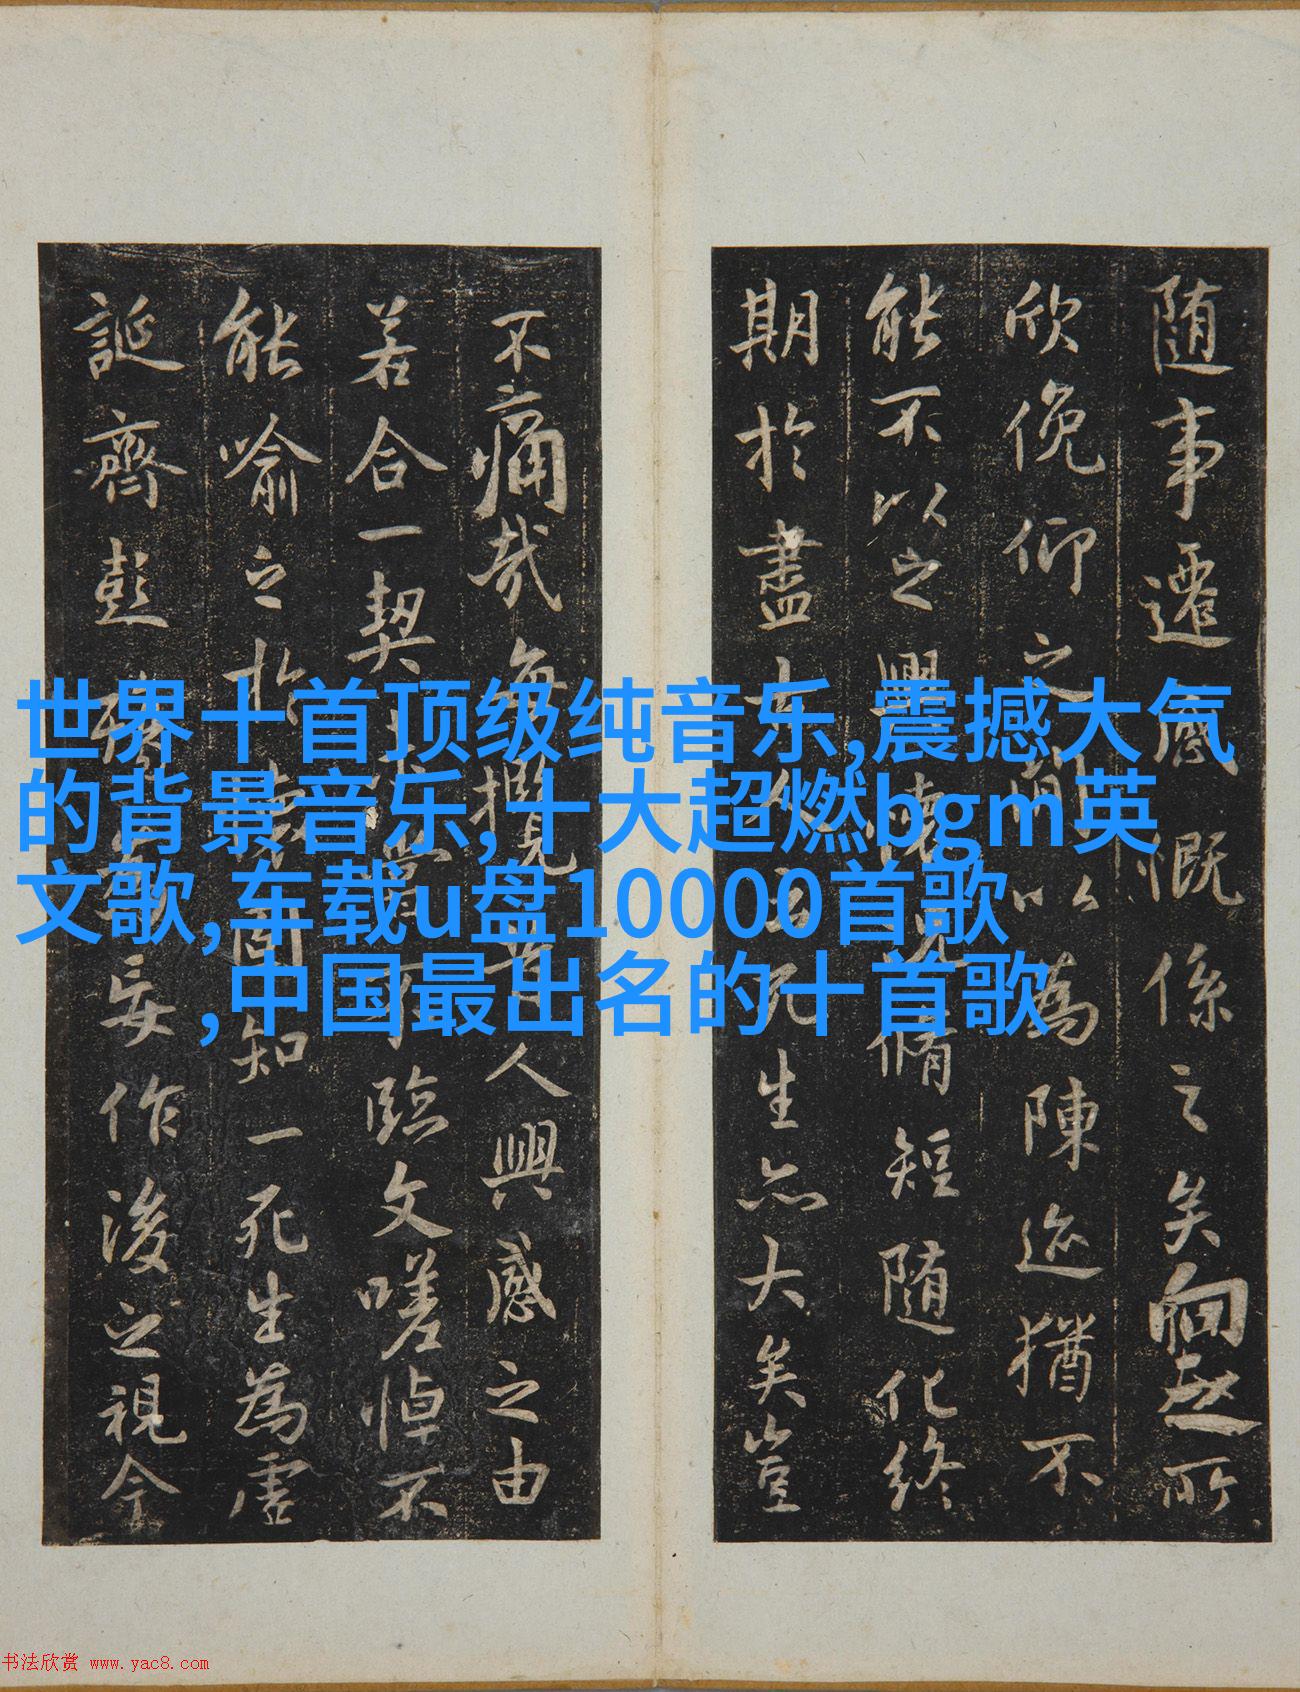 隨事遷感慨係之矣向之所
欣俛仰之閒以為陳迹猶不
能不以之興懷況脩短隨化終
期於盡古人云死生亦大矣豈
不痛哉每攬昔人興感之由
若合一契未嘗不臨文嗟悼不
能喻之於懷固知一死生為虛
誕齊彭殤為妄作後之視今
世界十首顶级纯音乐,震撼大气
的背景音乐,十大超燃bgm英
文歌,车载u盘10000首歌
,中国最出名的十首歌
书法欣赏 www.yac8.com